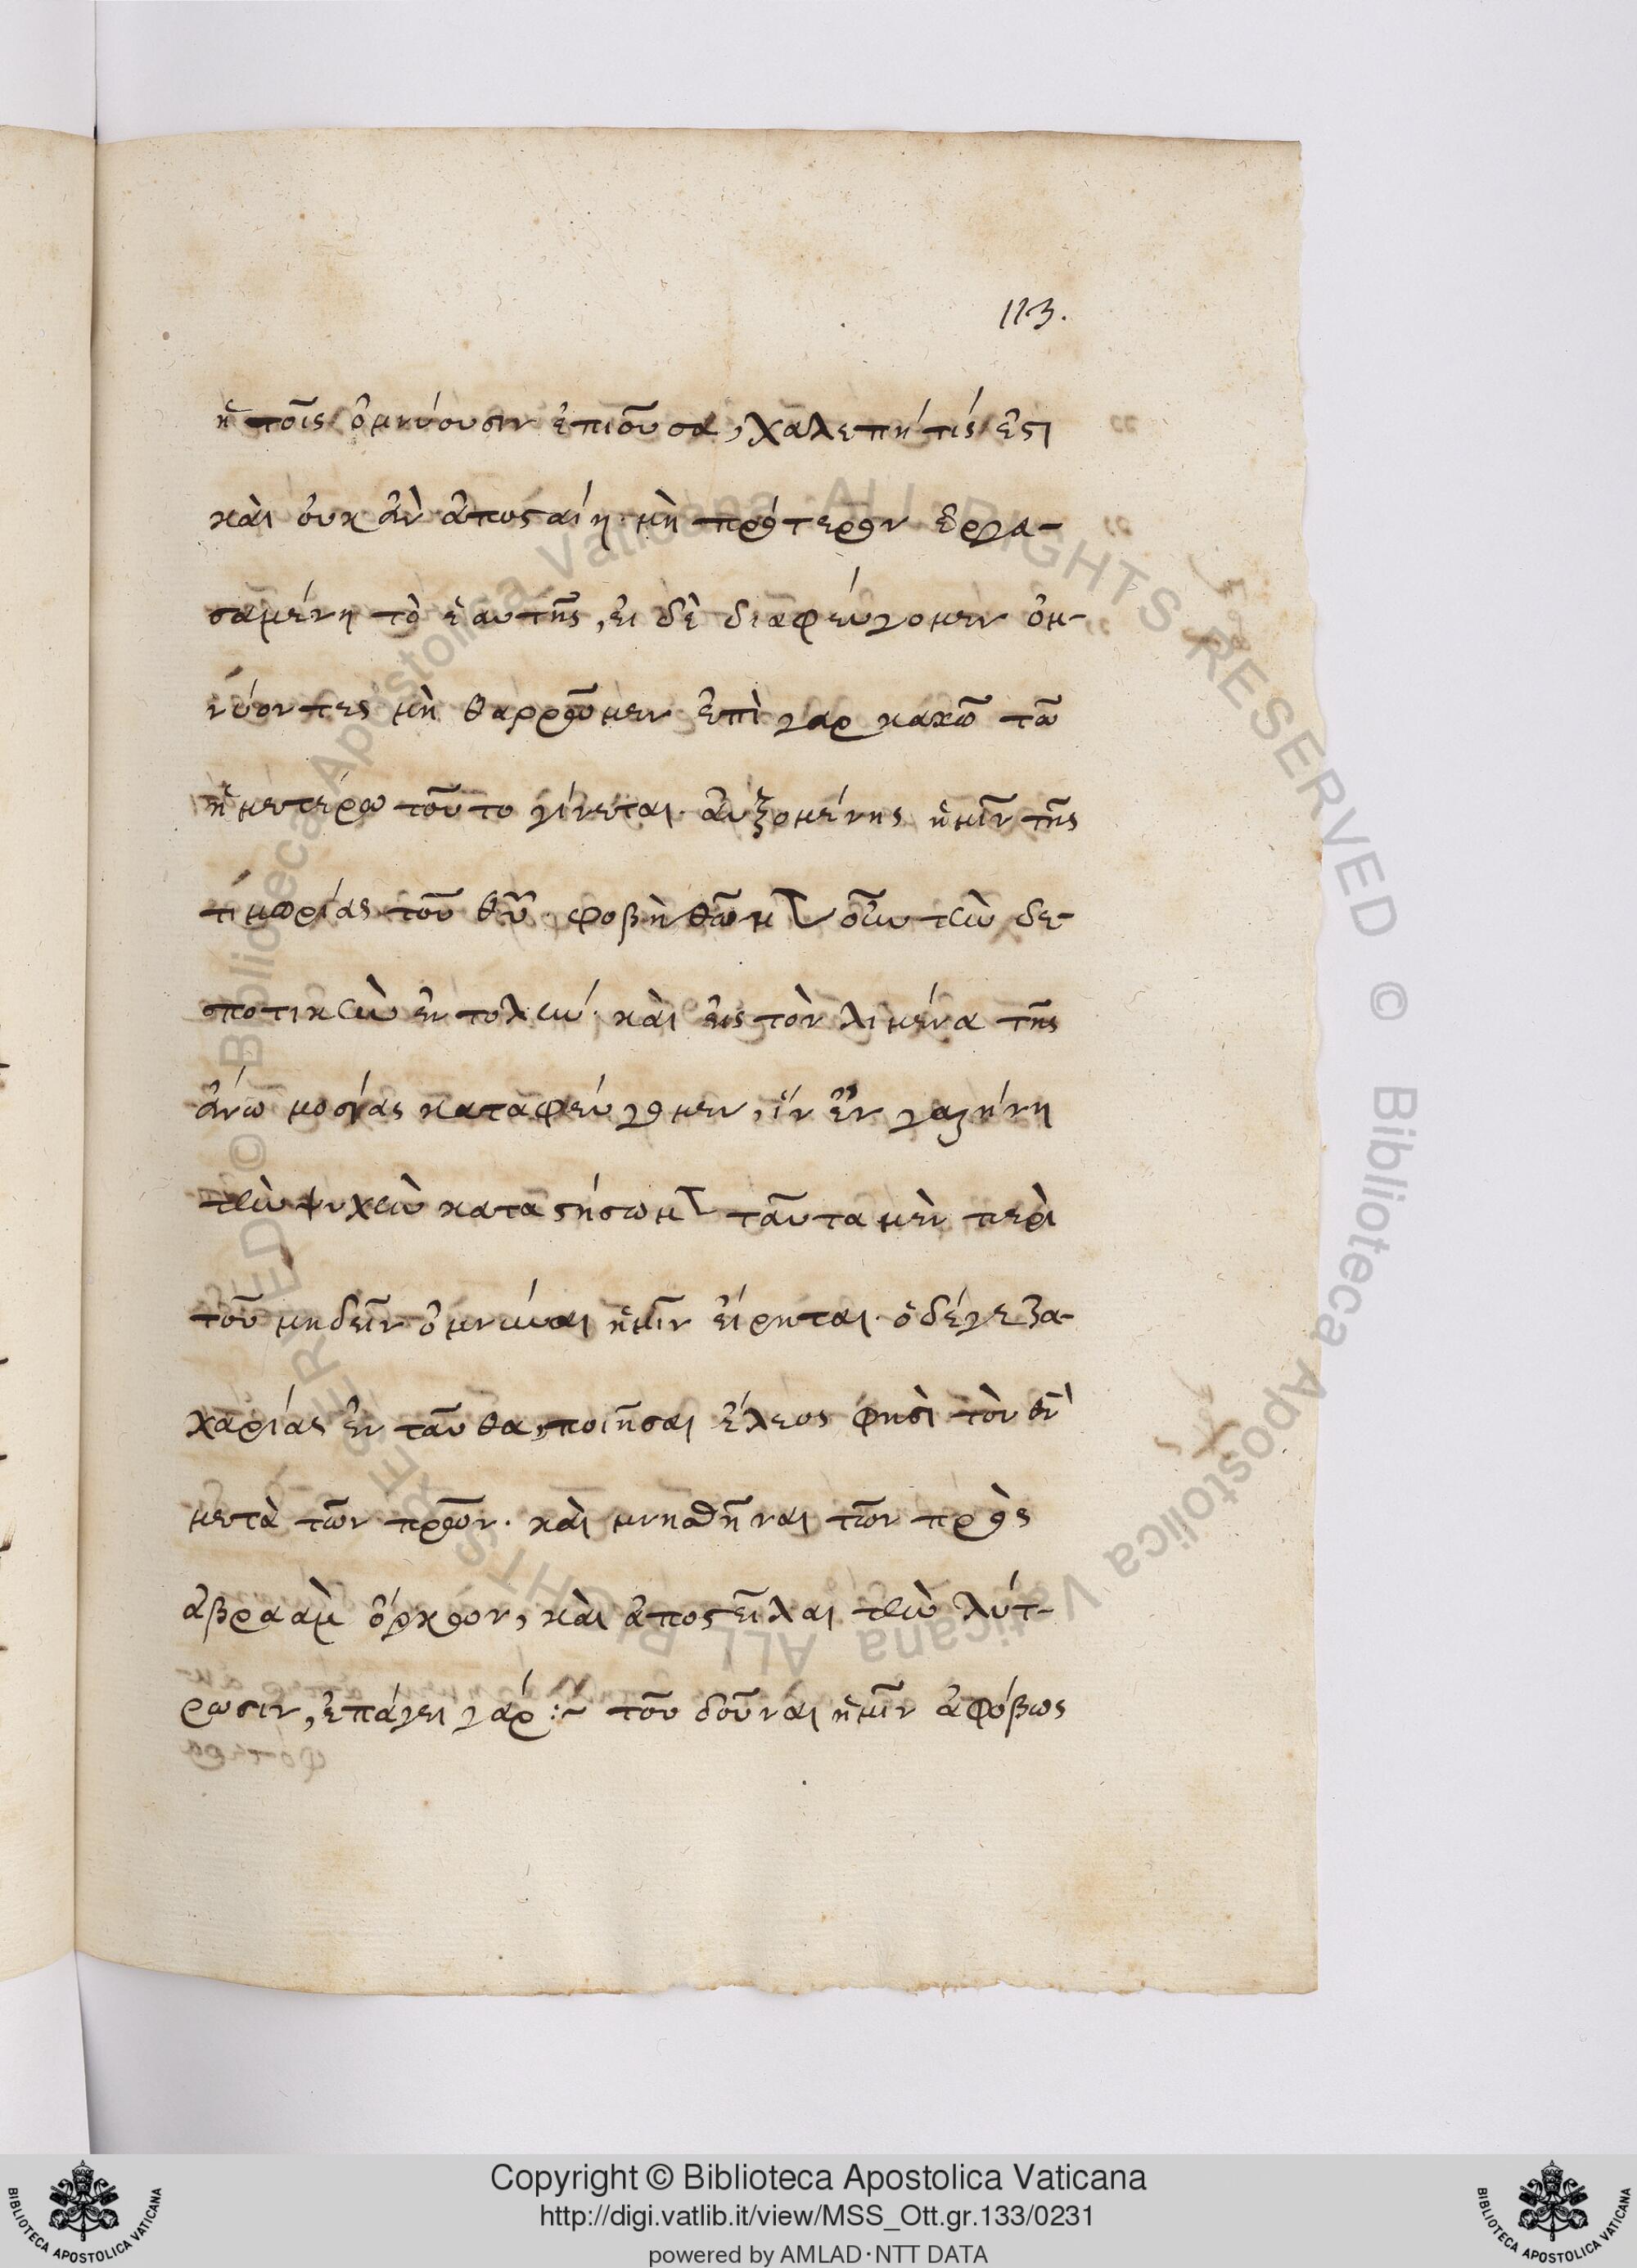 113.
ἡ τοῖς ὀμνύουσιν ἐπιοῦσα, χαλεπή τίς ἐστι
καὶ οὐκ ἂν ἀποσταίη· μὴ πρότερον ἐργα-
σαμένη τὸ ἑαυτῆς, εἰ δὲ διαφεύγομεν ὀμ-
νύοντες μὴ θαρρῶμεν ἐπὶ γαρ κακῶ τῶ
ἡμετέρω τοῦτο γίνεται· αὐξομένης ἡμῖν τῆς
τιμωρίας τοῦ θῦ· φοβηθῶμεν οὖν τὴν δε-
σποτικὴν ἐντολήν· καὶ εἰς τὸν λιμένα τῆς
ἀνωμοσίας καταφεύγομεν, ἵν ἐν γαλήνη
τὴν ψυχὴν καταστήσωμεν ταῦτα μὲν περὶ
τοῦ μηδεῖν ὀμνύναι ἡμῖν εἴρηται· ὁ δέ γε Ζα-
χαρίας ἐνταῦθα, ποιῆσαι ἔλεος φησὶ τὸν θν
μετὰ τῶν πρων· καὶ μνησθῆναι τῶν πρὸς
ἀβραὰμ ὅρκων, καὶ ἀποστεῖλαι τὴν λύτ-
ρωσιν, ἐπάγει γάρ :~ τοῦ δοῦναι ἡμῖν ἀφόβως
Copyright © Biblioteca Apostolica Vaticana
http://digi.vatlib.it/view/MSS_Ott.gr.133/0231
powered by AMLAD·NTT DATA
BIBLIOTECA APOSTOLICA VATICANA
BIBLIOTECA APOSTOLICA VATICANA
© Biblioteca Apostolica Vaticana ALL RIGHTS RESERVED
© Biblioteca Apostolica Vaticana ALL RIGHTS RESERVED